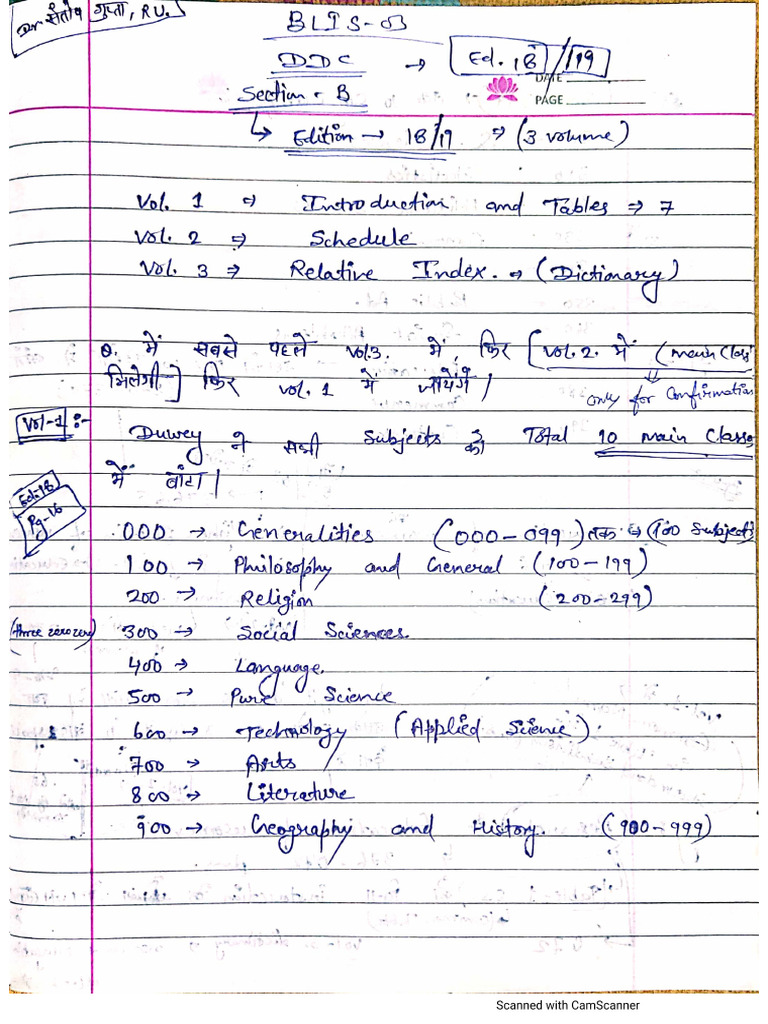 Dr संतोष गुप्ता, RU.
BLIS-03
DDC → Ed. 18/19
DATE
Section - B
PAGE
↳ Edition → 18/19 ⇒ (3 volume)
Vol. 1 ⇒ Introduction and Tables ⇒ 7
Vol. 2 ⇒ Schedule
Vol. 3 ⇒ Relative Index. ⇒ (Dictionary)
Q. में सबसे पहले Vol.3. में, फिर [Vol. 2. में (Main Class
मिलेगी] फिर Vol. 1 में जायेंगे।
only for Confirmation
Vol-1 :-
Duwey ने सभी Subjects को Total 10 Main Classes
में बांटा।
Ed.18
Pg-16
000 → Generalities (000-099) तक ⇒ (100 Subject)
100 → Philosophy and General (100-199)
200 → Religion (200-299)
(three zero zero) 300 → Social Sciences.
400 → Language.
500 → Pure Science
600 → Technology (Applied Science).
700 → Arts
800 → Literature
900 → Geography and History. (900-999)
Scanned with CamScanner